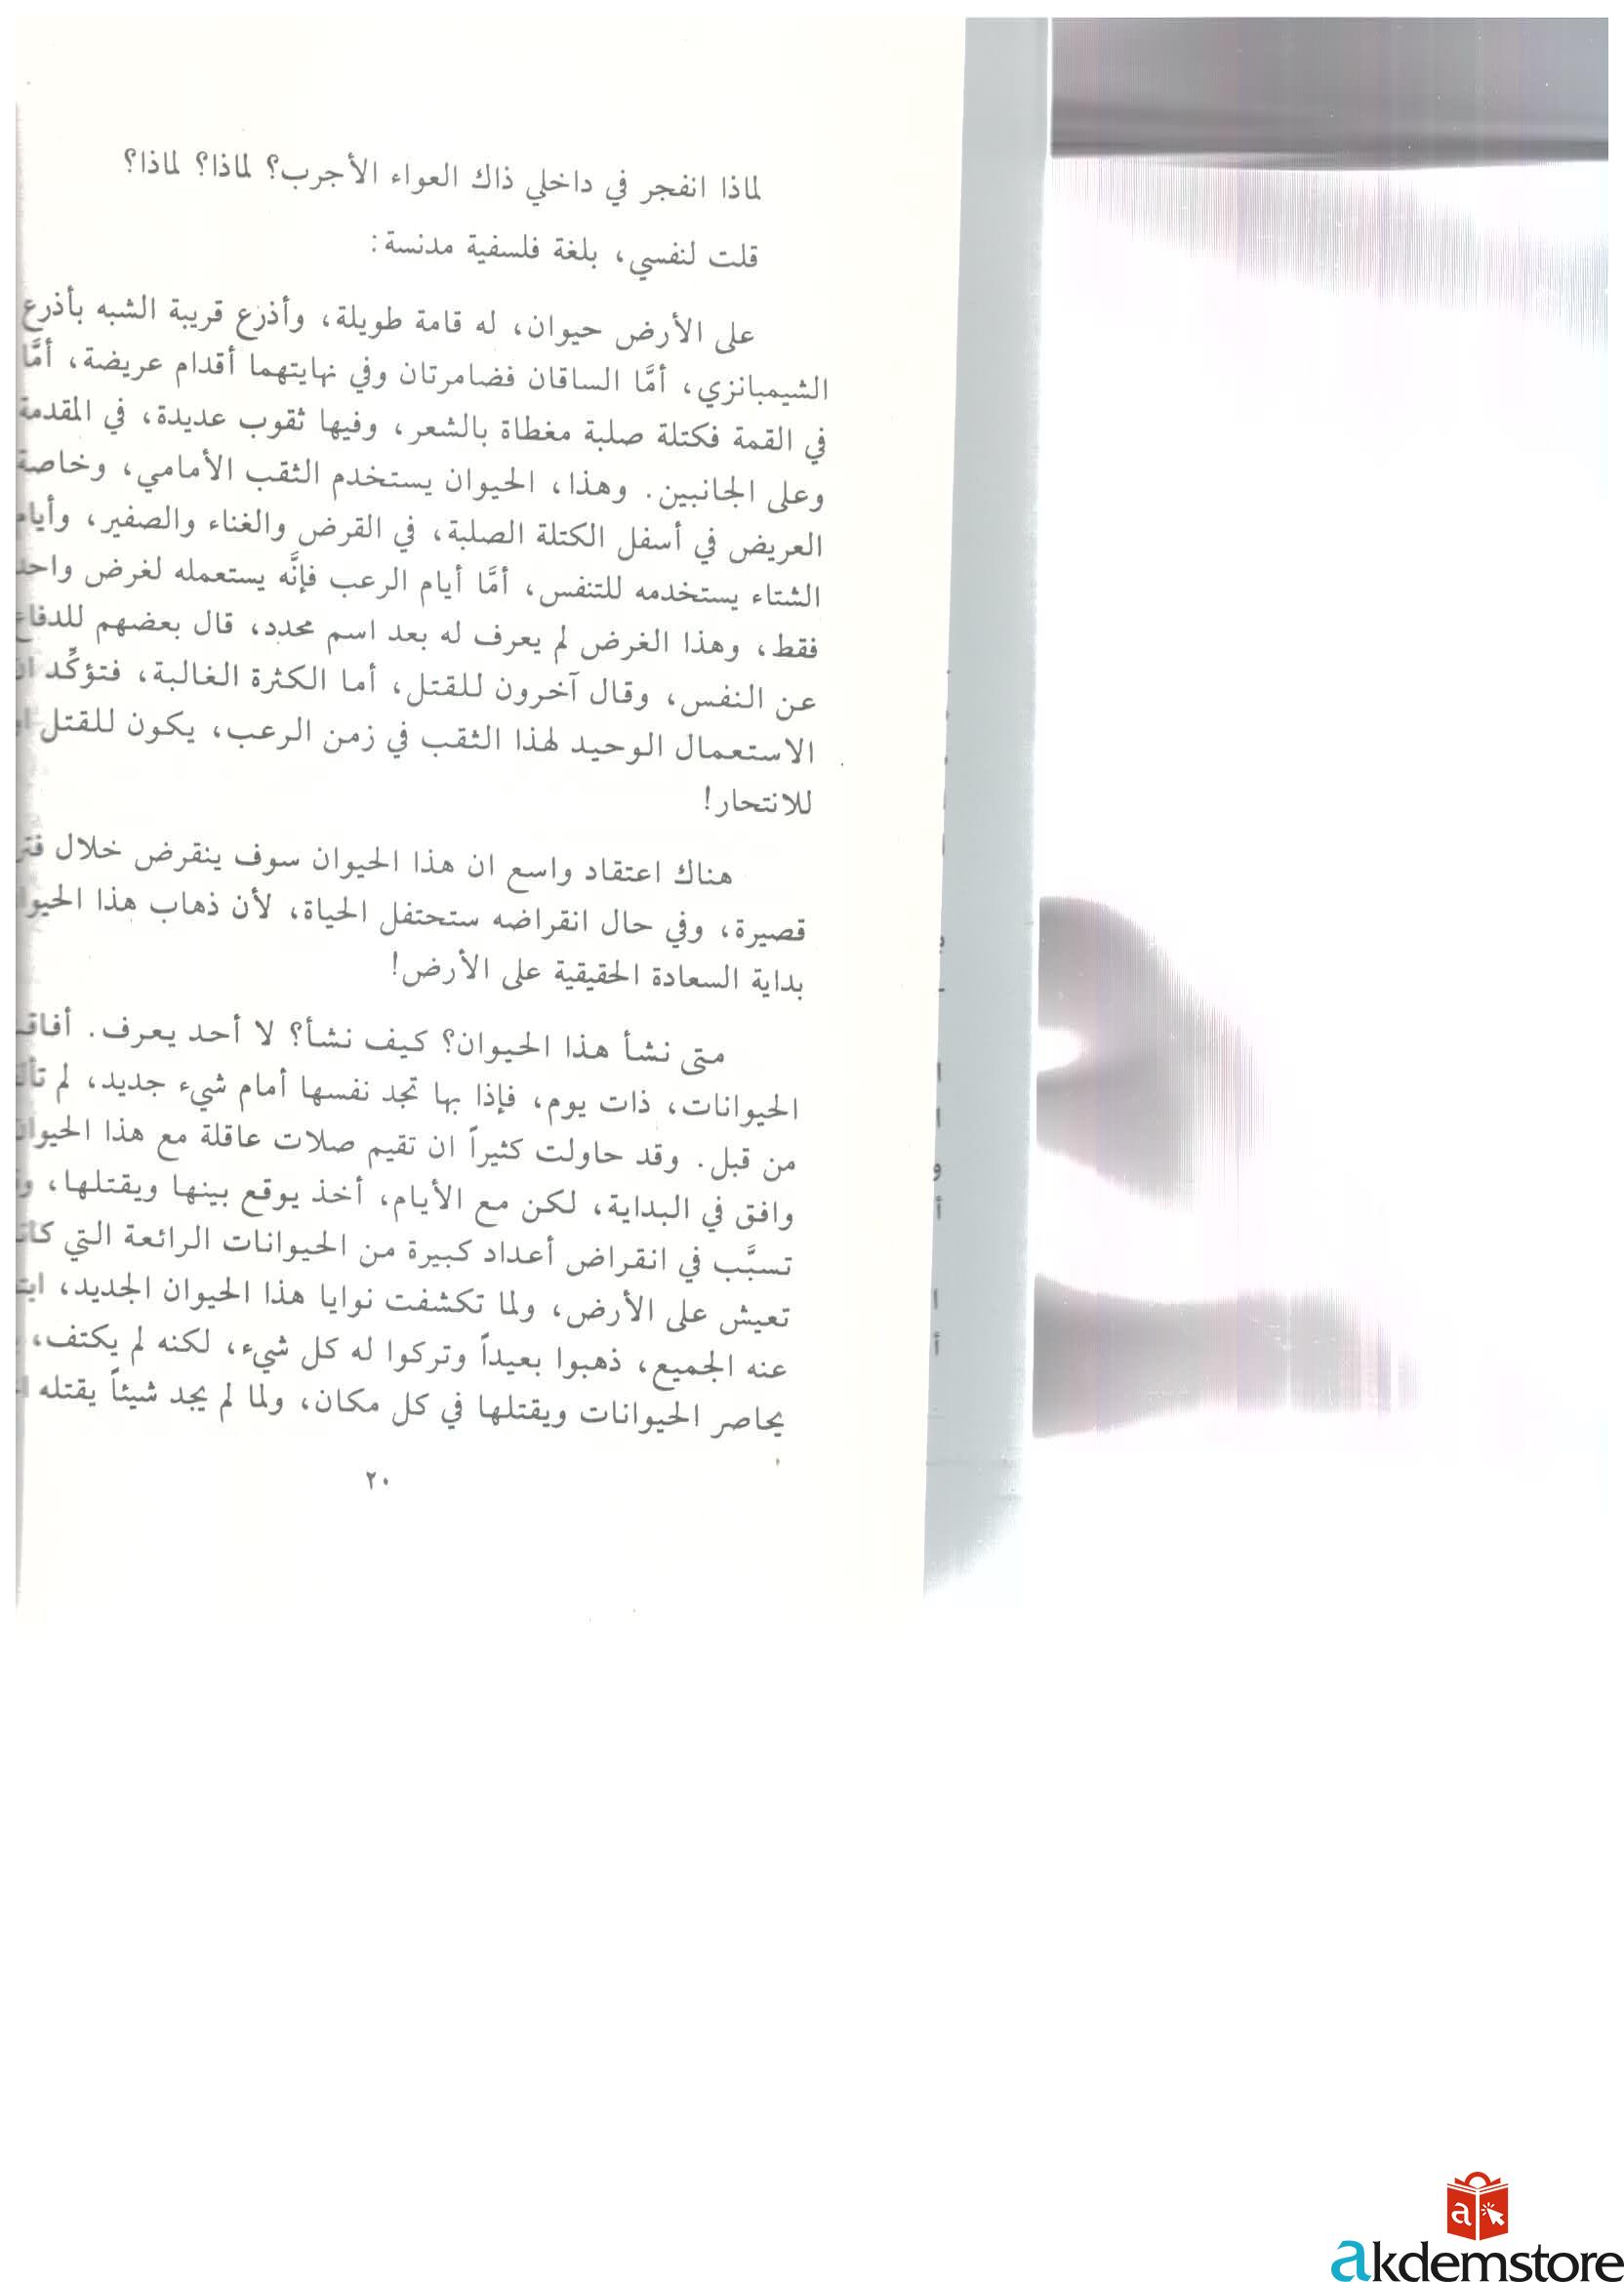 لماذا انفجر في داخلي ذاك العواء الأجرب؟ لماذا؟ لماذا؟
قلت لنفسي، بلغة فلسفية مدنسة:
على الأرض حيوان، له قامة طويلة، وأذرع قريبة الشبه بأذرع
الشيمبانزي، أمَّا الساقان فضامرتان وفي نهايتهما أقدام عريضة، أمَّا
في القمة فكتلة صلبة مغطاة بالشعر، وفيها ثقوب عديدة، في المقدمة
وعلى الجانبين. وهذا، الحيوان يستخدم الثقب الأمامي، وخاصة
العريض في أسفل الكتلة الصلبة، في القرض والغناء والصفير، وأيام
الشتاء يستخدمه للتنفس، أمَّا أيام الرعب فإنَّه يستعمله لغرض واحد
فقط، وهذا الغرض لم يعرف له بعد اسم محدد، قال بعضهم للدفاع
عن النفس، وقال آخرون للقتل، أما الكثرة الغالبة، فتؤكِّد ان
الاستعمال الوحيد لهذا الثقب في زمن الرعب، يكون للقتل
للانتحار!
هناك اعتقاد واسع ان هذا الحيوان سوف ينقرض خلال
قصيرة، وفي حال انقراضه ستحتفل الحياة، لأن ذهاب هذا
بداية السعادة الحقيقية على الأرض!
متى نشأ هذا الحيوان؟ كيف نشأ؟ لا أحد يعرف.
الحيوانات، ذات يوم، فإذا بها تجد نفسها أمام شيء جديد، لم
من قبل. وقد حاولت كثيراً ان تقيم صلات عاقلة مع هذا الحيوان
وافق في البداية، لكن مع الأيام، أخذ يوقع بينها ويقتلها،
تسبَّب في انقراض أعداد كبيرة من الحيوانات الرائعة التي
تعيش على الأرض، ولما تكشفت نوايا هذا الحيوان الجديد،
عنه الجميع، ذهبوا بعيداً وتركوا له كل شيء، لكنه لم يكتف،
يحاصر الحيوانات ويقتلها في كل مكان، ولما لم يجد شيئاً يقتله
٢٠
a
akdemstore